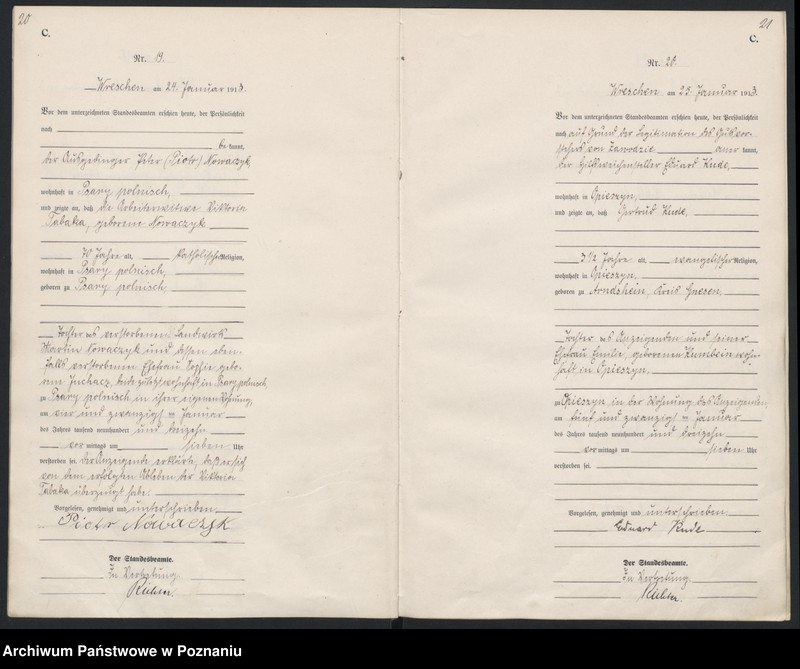 20
C.
Nr. 19.
Wreschen am 24. Januar 1913.
Vor dem unterzeichneten Standesbeamten erschien heute, der Persönlichkeit
nach
be kannt,
der Ausgedinger Peter (Piotr) Nowaczyk
wohnhaft in Psary polnisch,
und zeigte an, daß die Arbeiterwitwe Viktoria
Tabaka, geborene Nowaczyk
70 Jahre alt, katholischer Religion,
wohnhaft in Psary polnisch,
geboren zu Psary polnisch,
Tochter des verstorbenen Landwirts
Martin Nowaczyk und dessen eben-
falls verstorbenen Ehefrau Sophie gebo-
rene Juchacz, beide zuletzt wohnhaft in Psary polnisch,
zu Psary polnisch in ihrer eigenen Wohnung,
am vier und zwanzigsten Januar
des Jahres tausend neunhundert und dreizehn
vor mittags um sieben Uhr
verstorben sei. Der Anzeigende erklärte, daß er sich
von dem erfolgten Ableben der Viktoria
Tabaka überzeugt habe.
Vorgelesen, genehmigt und unterschrieben.
Piotr Nowaczyk
Der Standesbeamte.
In Vertretung
21
C.
Nr. 20.
Wreschen am 25. Januar 1913.
Vor dem unterzeichneten Standesbeamten erschien heute, der Persönlichkeit
nach auf Grund der Legitimation des Gutsvor-
stehers von Zawodzie aner kannt,
der Hilfsweichensteller Eduard Kude,
wohnhaft in Opieszyn,
und zeigte an, daß Gertrud Kude,
3 1/2 Jahre alt, evangelischer Religion,
wohnhaft in Opieszyn,
geboren zu Arndshein, Kreis Gnesen,
Tochter des Anzeigenden und seiner
Ehefrau Emilie, geborenen Zumbein wohn-
haft in Opieszyn
zu Opieszyn in der Wohnung des Anzeigenden,
am fünf und zwanzigsten Januar
des Jahres tausend neunhundert und dreizehn
vor mittags um sieben Uhr
verstorben sei.
Vorgelesen, genehmigt und unterschrieben.
Eduard Kude
Der Standesbeamte.
In Vertretung
Archiwum Państwowe w Poznaniu